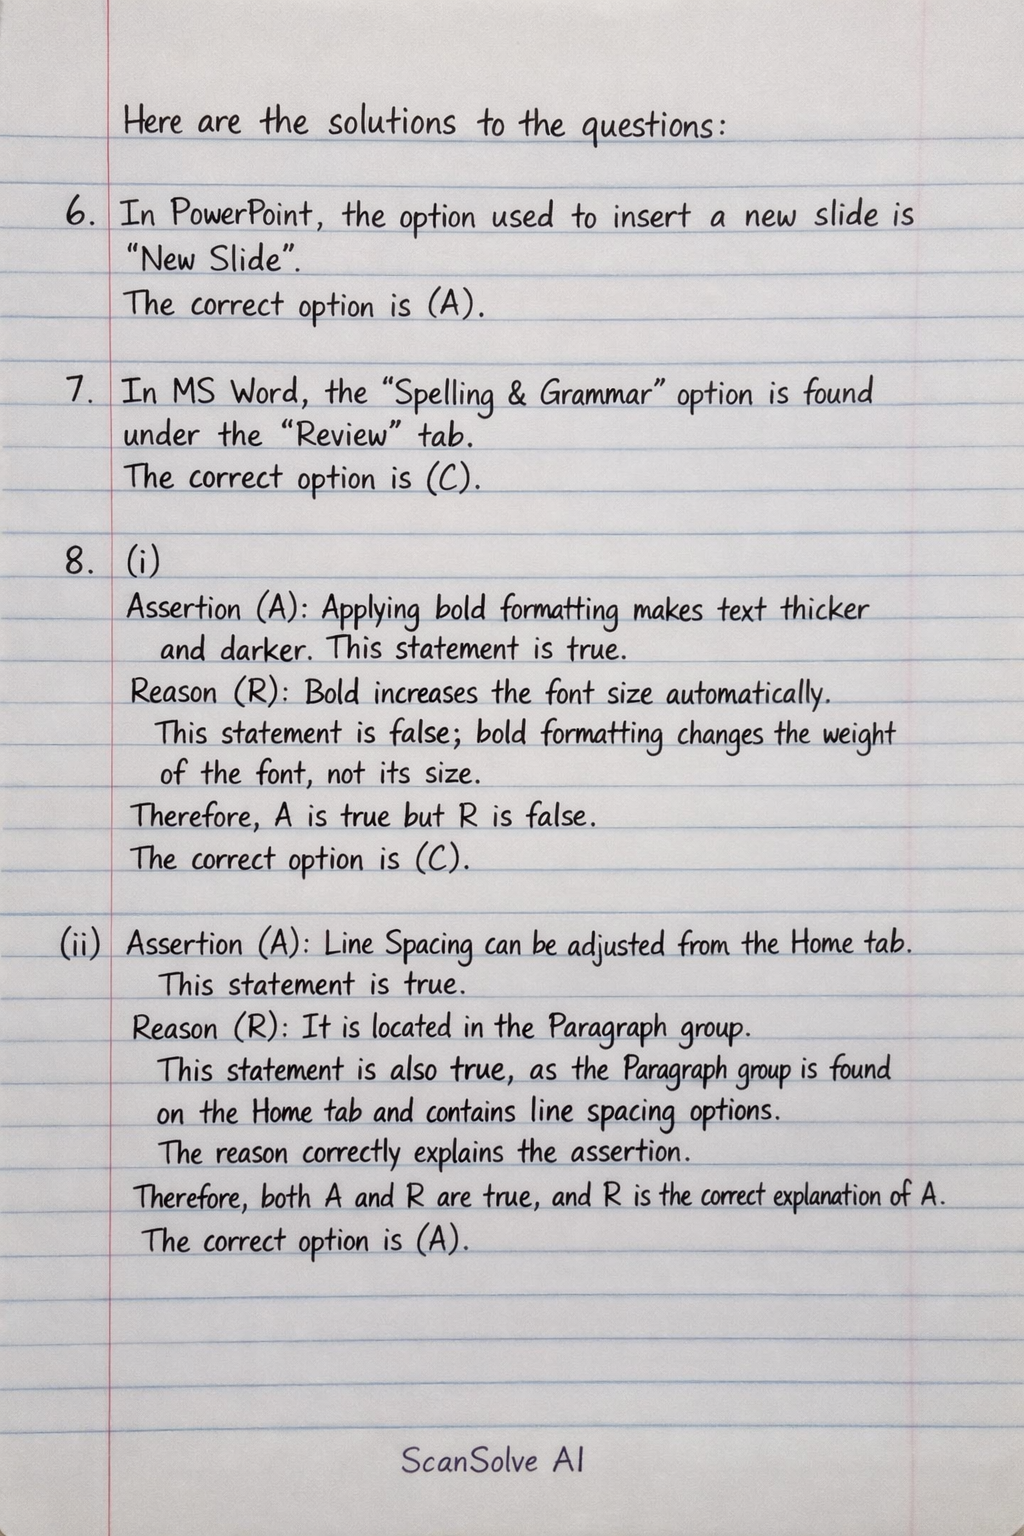 Here are the solutions to the questions:
6. In PowerPoint, the option used to insert a new slide is
"New Slide".
The correct option is (A).
7. In MS Word, the "Spelling & Grammar" option is found
under the "Review" tab.
The correct option is (C).
8. (i)
Assertion (A): Applying bold formatting makes text thicker
and darker. This statement is true.
Reason (R): Bold increases the font size automatically.
This statement is false; bold formatting changes the weight
of the font, not its size.
Therefore, A is true but R is false.
The correct option is (C).
(ii) Assertion (A): Line Spacing can be adjusted from the Home tab.
This statement is true.
Reason (R): It is located in the Paragraph group.
This statement is also true, as the Paragraph group is found
on the Home tab and contains line spacing options.
The reason correctly explains the assertion.
Therefore, both A and R are true, and R is the correct explanation of A.
The correct option is (A).
ScanSolve AI